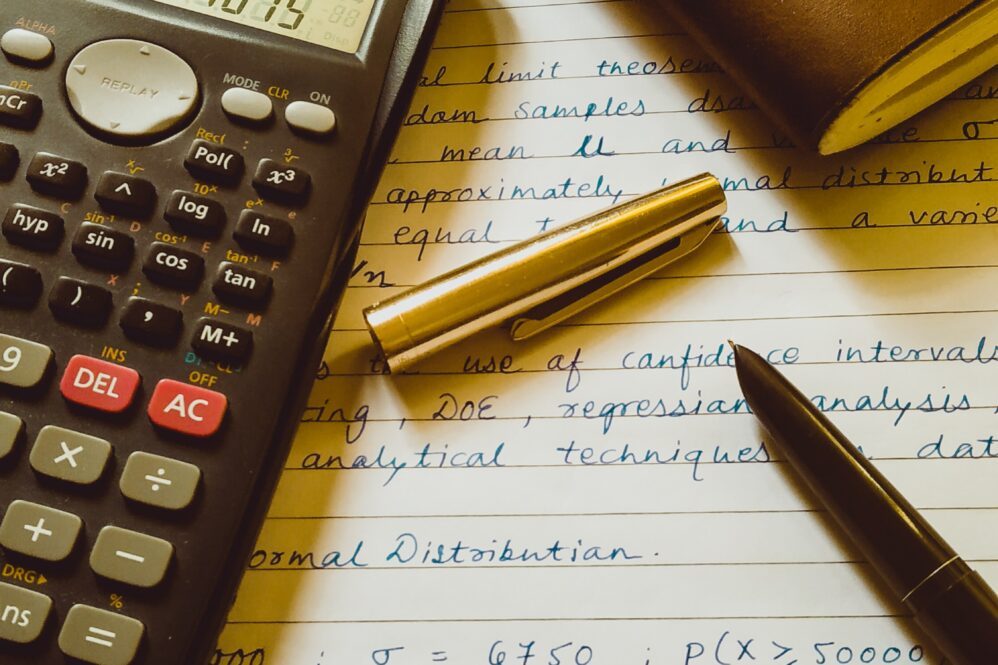 ALPHA
REPLAY
MODE CLR ON
nCr
Rec(
Pol(
x² ^ x³
10ˣ eˣ e
hyp C sin⁻¹ D log ln
sin cos⁻¹ E tan⁻¹ F
( cos tan
) X ; Y M– M
, M+
9 INS
DEL OFF
AC
× ÷
+ −
DRG▸ %
ns =
al limit theorem
dom samples
mean μ and σ
approximately mal distribut
equal and a varie
/n
use of confidence intervals
ing, DOE, regression analysis,
analytical techniques dat
ormal Distribution.
000 ; σ = 6750 ; P(X > 50000